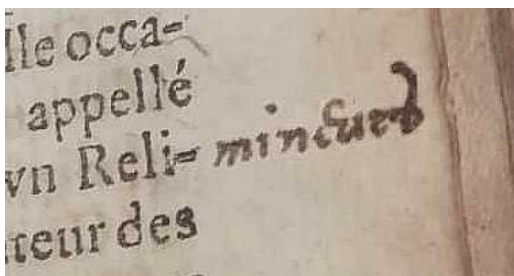 lle occa-
appellé
vn Reli-
teur des